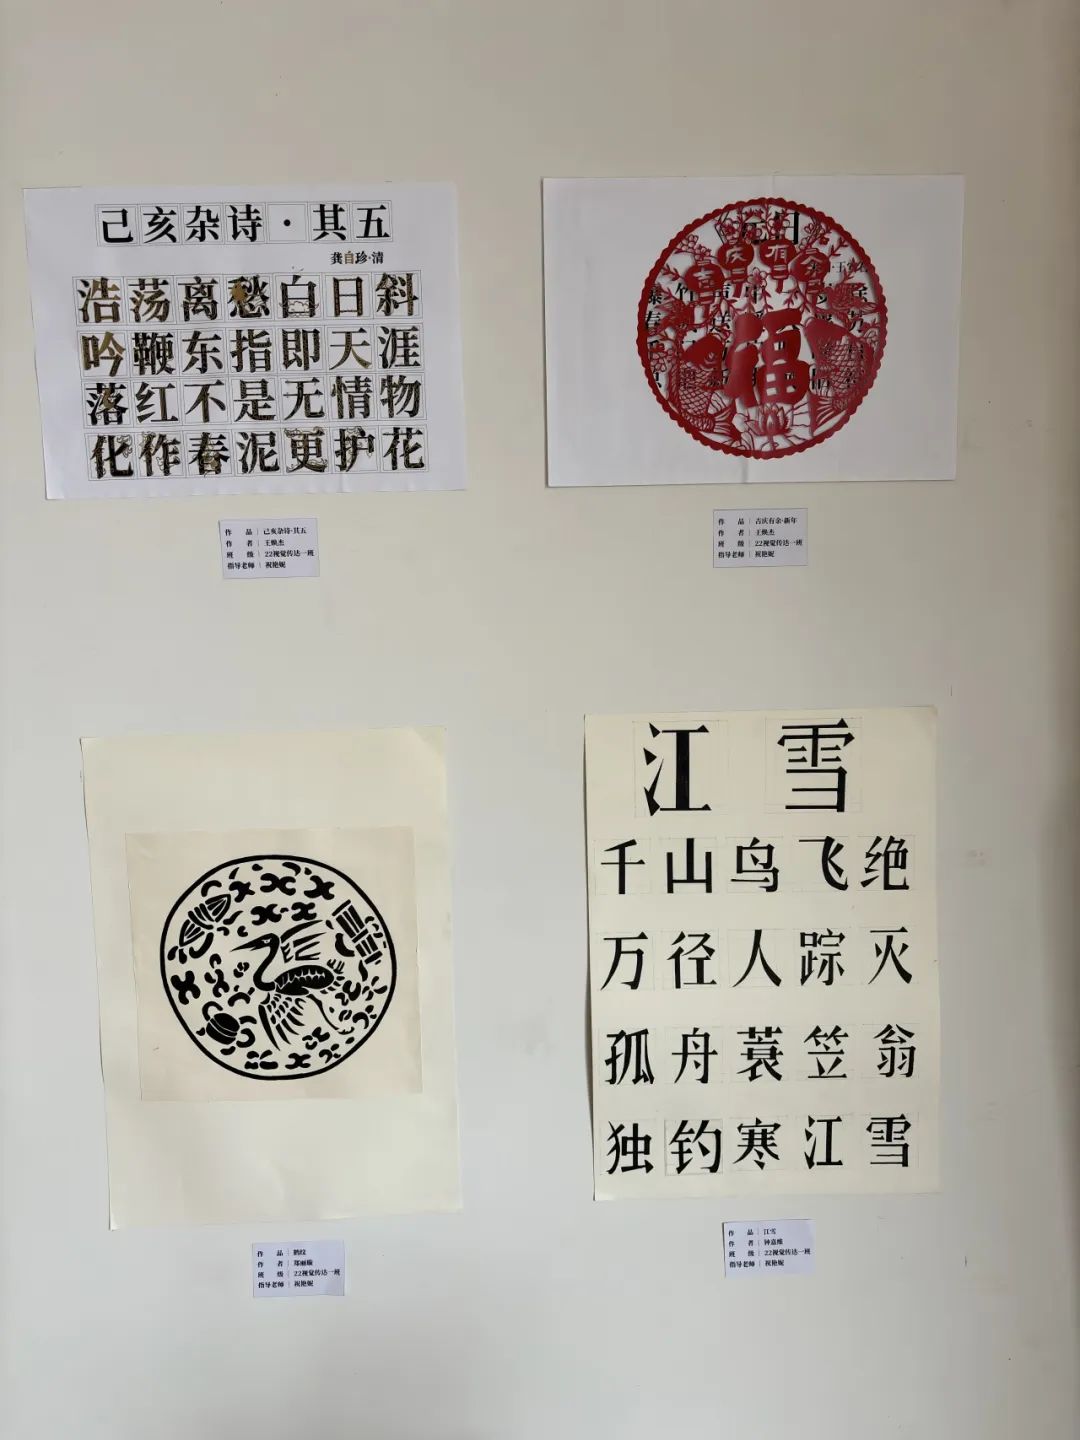 己亥杂诗·其五
龚自珍·清
浩荡离愁白日斜
吟鞭东指即天涯
落红不是无情物
化作春泥更护花
作 品｜己亥杂诗·其五
作 者｜王焕杰
班 级｜22视觉传达一班
指导老师｜祝艳妮
元日
吉庆有余
福
作 品｜吉庆有余·新年
作 者｜王焕杰
班 级｜22视觉传达一班
指导老师｜祝艳妮
作 品｜鹤纹
作 者｜郑丽璇
班 级｜22视觉传达一班
指导老师｜祝艳妮
江雪
千山鸟飞绝
万径人踪灭
孤舟蓑笠翁
独钓寒江雪
作 品｜江雪
作 者｜钟嘉维
班 级｜22视觉传达一班
指导老师｜祝艳妮